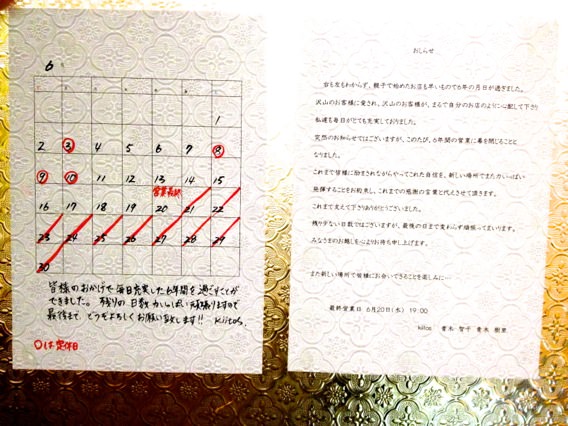 6月
1
2 3 4 5 6 7 8
9 10 11 12 13 14 15
営業最終
16 17 18 19 20 21 22
23 24 25 26 27 28 29
30
皆様のおかげで毎日充実した6年間を過ごすことが
できました。残りの日数力いっぱい頑張りますので
最後まで、どうぞよろしくお願い致します!! kiitos.
○は定休日
おしらせ
右も左もわからず、親子で始めたお店も早いもので6年の月日が過ぎました。
沢山のお客様に愛され、沢山のお客様が、まるで自分のお店のように心配して下さり
私達も毎日がとても充実しておりました。
突然のお知らせではございますが、このたび、6年間の営業に幕を閉じることと
なりました。
これまで皆様に励まされながらやってこれた自信を、新しい場所でまた力いっぱい
発揮することをお約束し、これまでの感謝の言葉と代えさせて頂きます。
これまで支えて下さりありがとうございました。
残り少ない日数ではございますが、最後の日まで変わらず頑張ってまいります。
みなさまのお越しを心よりお待ち申し上げます。
また新しい場所で皆様にお会いできることを楽しみに…
最終営業日 6月20日(木) 19:00
kiitos 青木 智子 青木 樹里